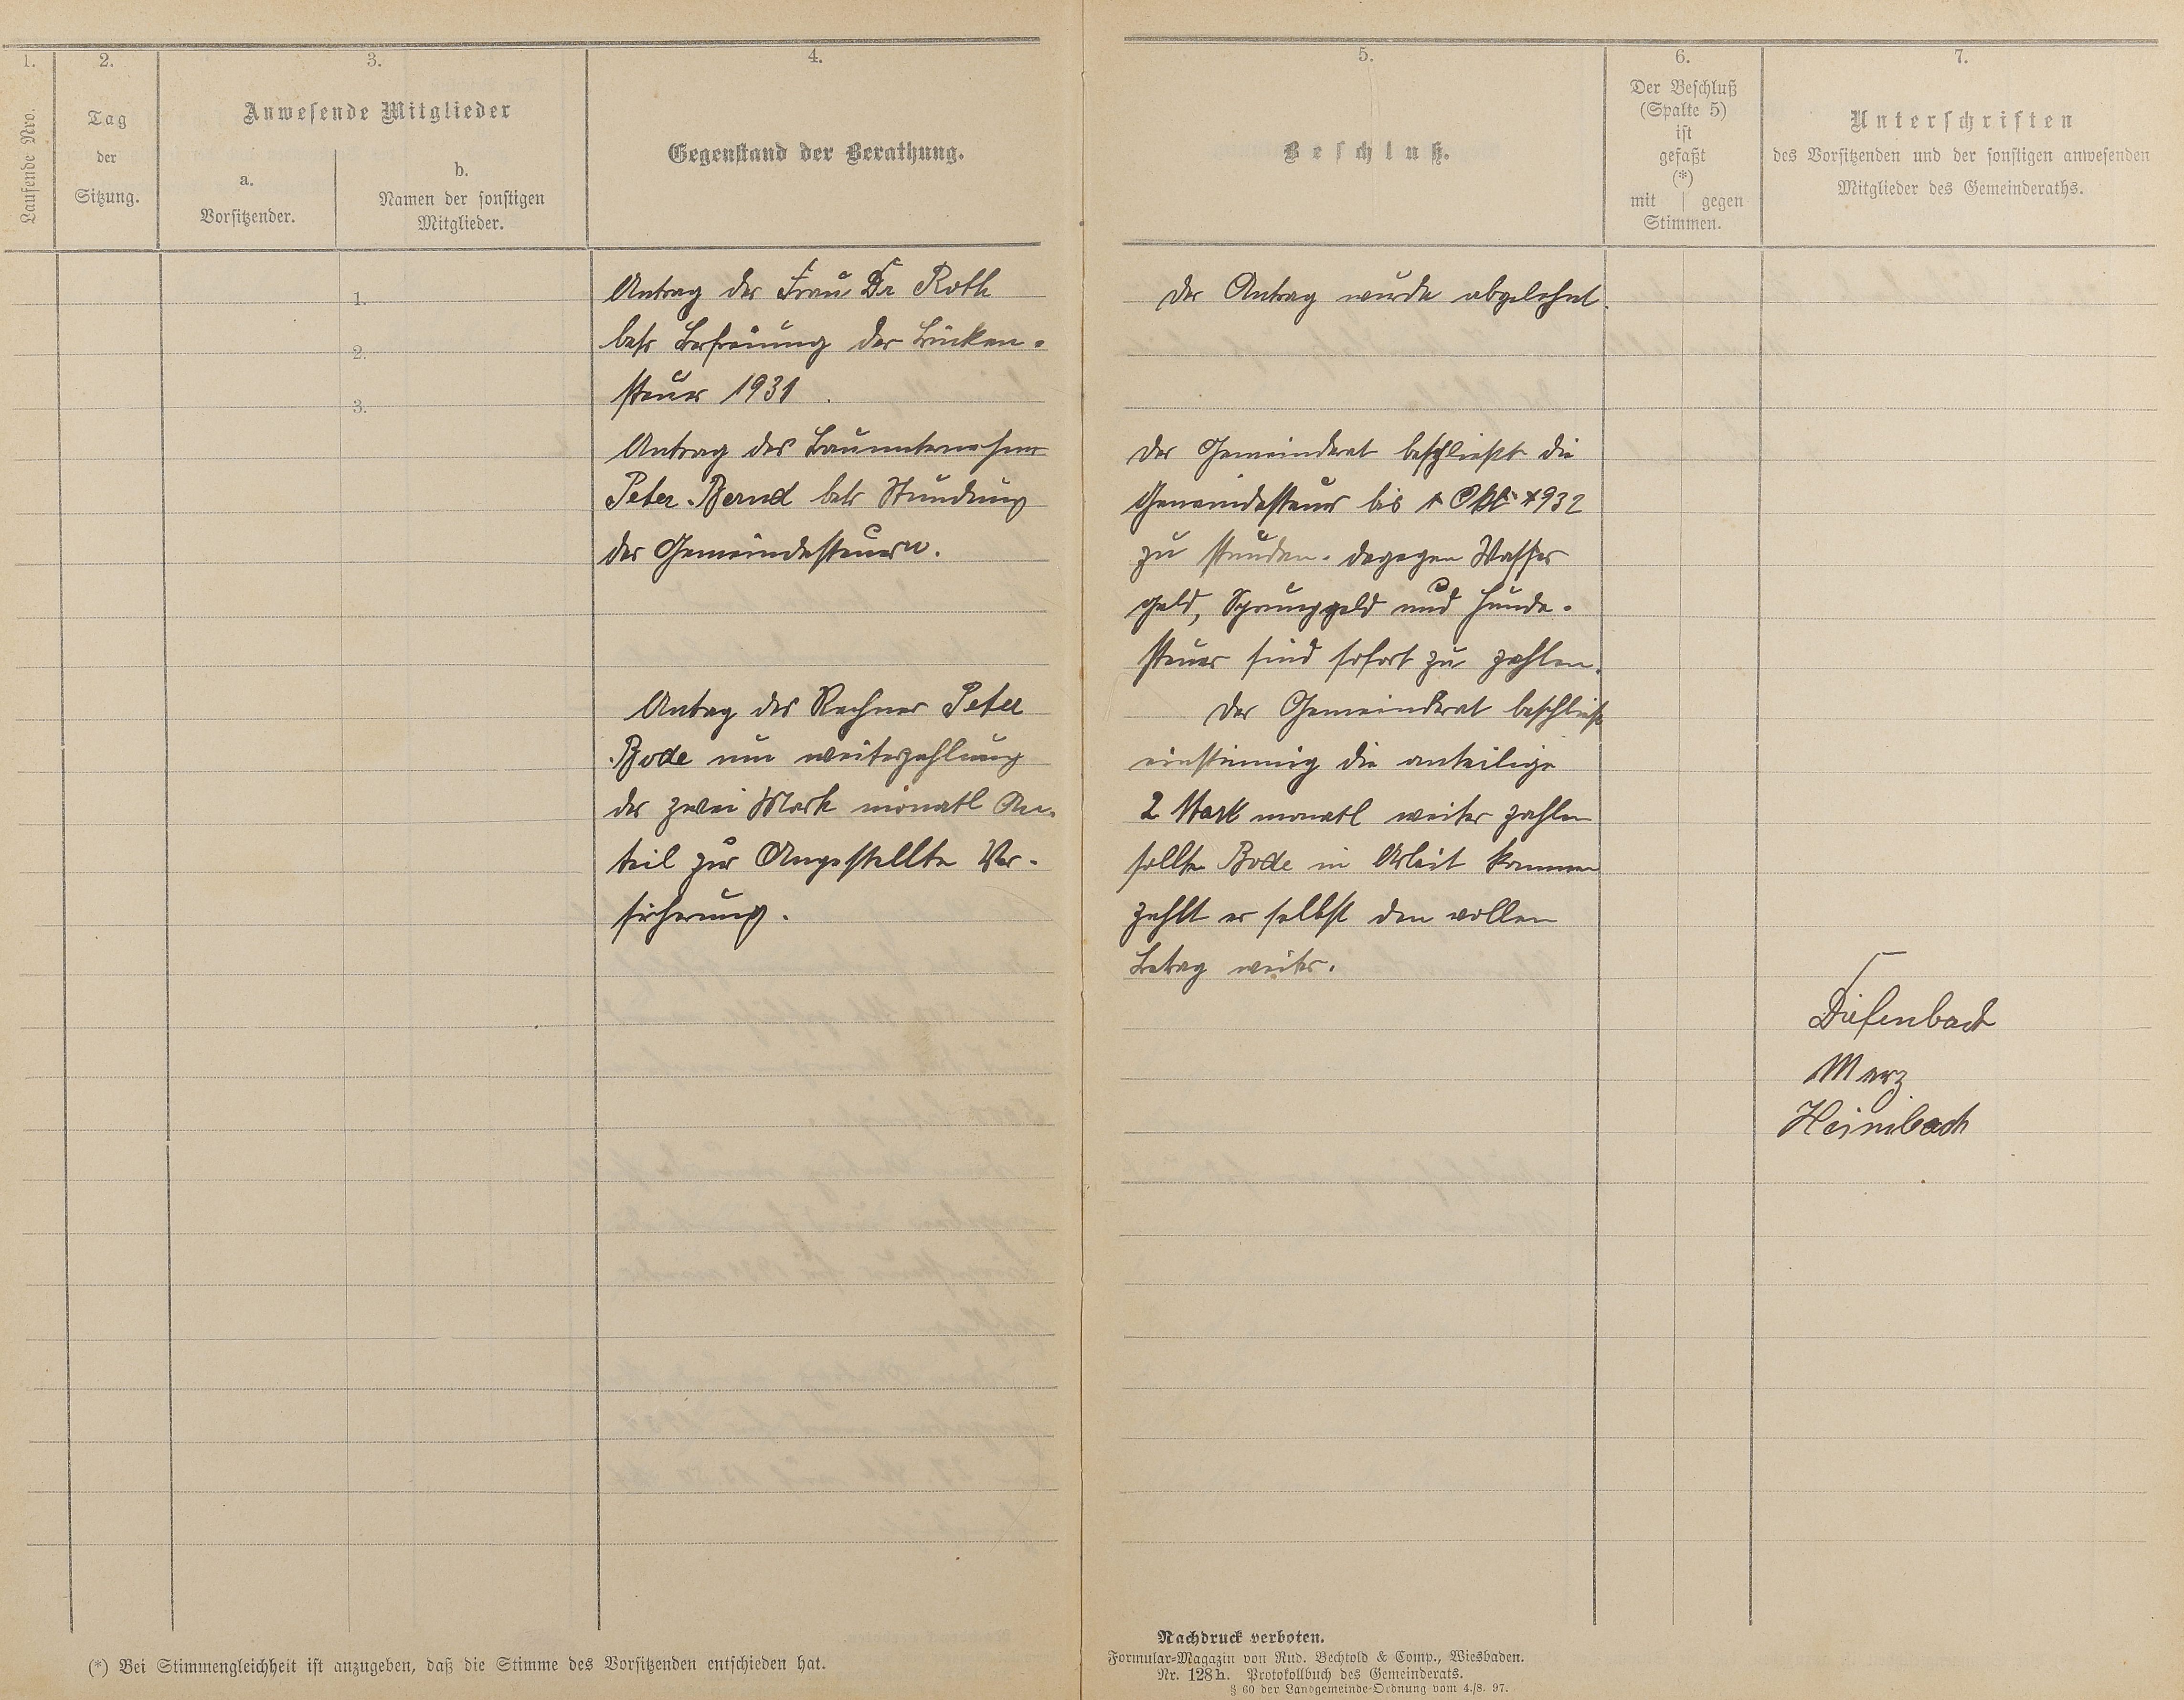 1.
2.
3.
4.
Laufende Nro.
Tag
der
Sitzung.
Anwesende Mitglieder
a.
Vorsitzender.
b.
Namen der sonstigen
Mitglieder.
Gegenstand der Berathung.
1.
2.
3.
Antrag der Frau Dr Roth
betr Befreiung der Brücken-
steuer 1931.
Antrag des Bauunternehmer
Peter Bernd betr Stundung
der Gemeindesteuern.
Antag des Rechner Peter
Bode um weiterzahlung
der zwei Mark monatl An-
teil zur Angestellte Ver-
sicherung.
(*) Bei Stimmengleichheit ist anzugeben, daß die Stimme des Vorsitzenden entschieden hat.
5.
6.
7.
Beschluß.
Der Beschluß
(Spalte 5)
ist
gefaßt
(*)
mit | gegen
Stimmen.
Unterschriften
des Vorsitzenden und der sonstigen anwesenden
Mitglieder des Gemeinderaths.
Der Antrag wurde abgelehnt.
Der Gemeinderat beschließt die
Gemeindesteuer bis 1 Okt 1932
zu stunden. dagegen Wasser
geld, Sprunggeld und Hunde-
steuer sind sofort zu zahlen.
Der Gemeinderat beschließt
einstimmig die anteilige
2 Mark monatl weiter zahlen
sollte Bode in Arbeit kommen
zahlt er selbst den vollen
Betrag weiter.
Diefenbach
Merz
Heimbach
Nachdruck verboten.
Formular-Magazin von Rud. Bechtold & Comp., Wiesbaden.
Nr. 128h. Protokollbuch des Gemeinderats.
§ 60 der Landgemeinde-Ordnung vom 4./8. 97.